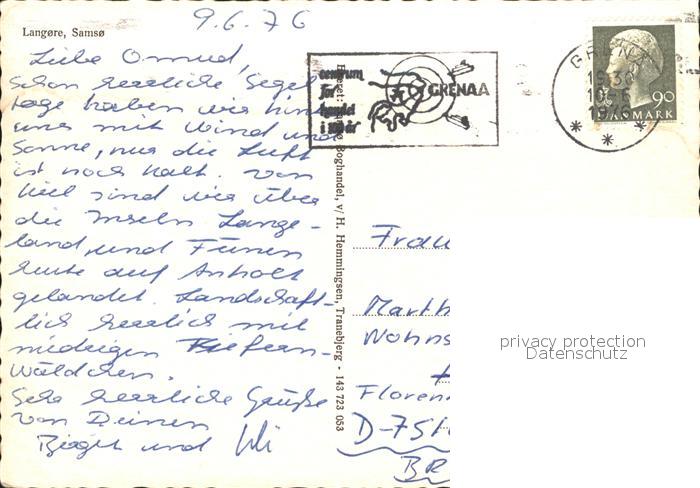 9.6.76
Langøre, Samsø
Liebe Omud,
schon herrliche Segel-
tage haben wir hinter
uns mit Wind und
Sonne, nur die Luft
ist noch kalt. Von
Kiel sind wir über
die Inseln Lange-
land und Fünen
heute auf Anholt
gelandet. Landschaft-
lich herrlich mit
niedrigen Kiefern-
wäldchen.
Sehr herrliche Grüße
von Deinen
Birgit und Uli
centrum
for
handel
i 100 år
GRENAA
GRENAA
1930
10.6
1976
90
DANMARK
Boghandel, v/ H. Hemmingsen, Tranebjerg - 143 723 053
Frau
Marth
Wohns
Floren
D-75
BR
privacy protection
Datenschutz